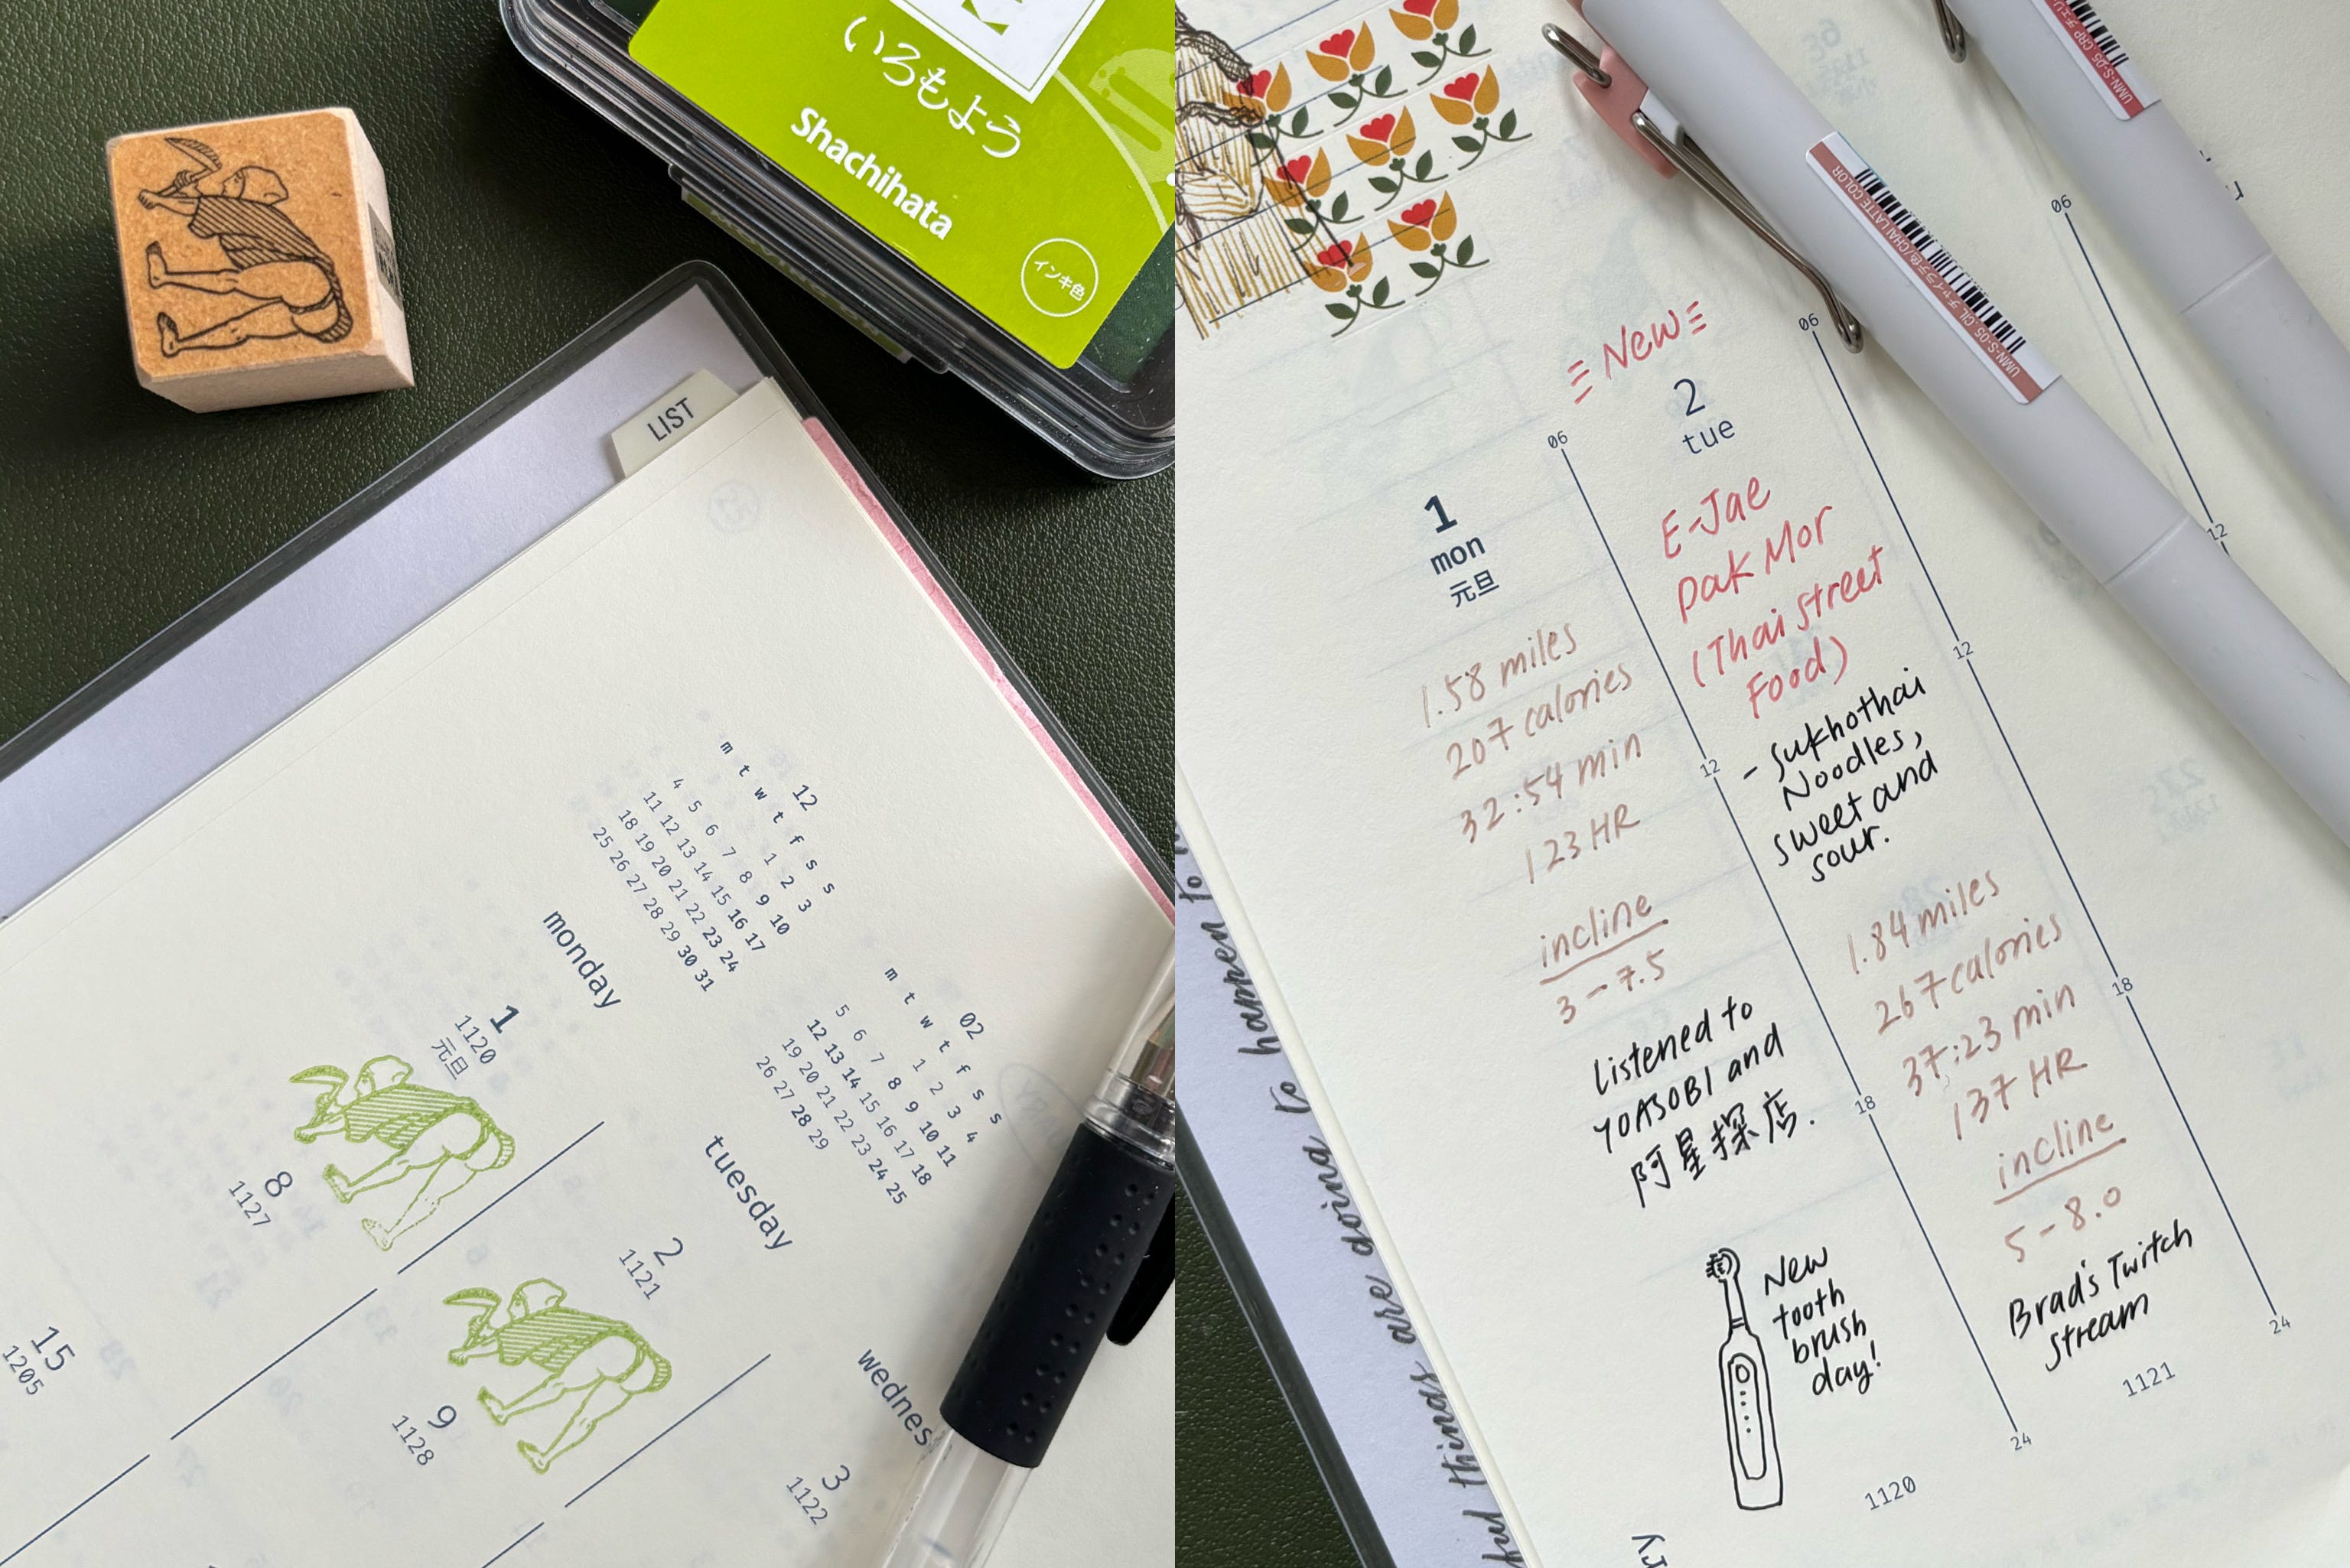 いろもよう
Shachihata
インキ色
LIST
12
m t w t f s s
1 2 3
4 5 6 7 8 9 10
11 12 13 14 15 16 17
18 19 20 21 22 23 24
25 26 27 28 29 30 31
02
m t w t f s s
1 2 3 4
5 6 7 8 9 10 11
12 13 14 15 16 17 18
19 20 21 22 23 24 25
26 27 28 29
monday
1
1120
元旦
8
1127
15
1205
tuesday
2
1121
9
1128
wednes
3
1122
UMN-S-05 CIL チャイラテ色/CHAI LATTE COLOR
UMN-S-05 CRP
New
1
mon
元旦
1.58 miles
207 calories
32:54 min
123 HR
incline
3-7.5
Listened to
YOASOBI and
阿星探店.
New
tooth
brush
day!
1120
06
12
18
24
2
tue
E-Jae
Pak Mor
(Thai Street
Food)
- Sukhothai
Noodles,
sweet and
sour.
1.84 miles
267 calories
37:23 min
137 HR
incline
5-8.0
Brad's Twitch
stream
1121
06
12
18
24
06
12
things are going to happen to